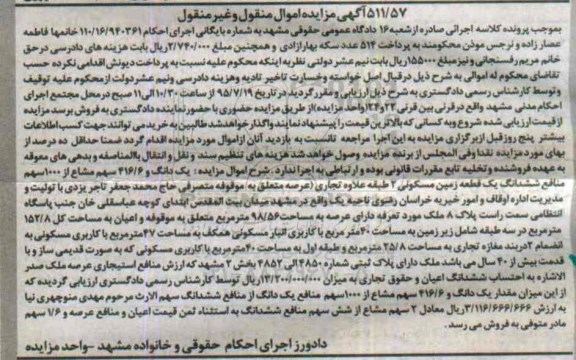 ۵۱۱/۵۷ آگهی مزایده اموال منقول و غیر منقول
بموجب پرونده کلاسه اجرائی صادره از شعبه ۱۶ دادگاه عمومی حقوقی مشهد به شماره بایگانی اجرای احکام ۱۱۰/۱۶/۹۴۰۳۶۱ خانمها فاطمه
عصار زاده و نرجس موذن محکومند به پرداخت ۵۱۴ عدد سکه بهار ازادی و همچنین مبلغ ۲/۷۴۰/۰۰۰ ریال بابت هزینه های دادرسی در حق
خانم مریم رفسنجانی و نیز مبلغ ۱۵۵۰۰۰ ریال بابت نیم عشر دولتی نظر به اینکه محکوم علیه نسبت به پرداخت دیونش اقدامی نکرده حسب
تقاضای محکوم له اموالی به شرح ذیل در قبال اصل خواسته و خسارت تاخیر تادیه و هزینه دادرسی و نیم عشر دولت از محکوم علیه توقیف
و توسط کارشناس رسمی دادگستری به شرح ذیل ارزیابی و مقرر گردید در تاریخ ۹۵/۷/۱۹ از ساعت ۱۰/۳۰ الی ۱۱ صبح در محل مجتمع اجرای
احکام مدنی مشهد واقع در قرنی بین قرنی ۲۲ و ۲۴ (واحد مزایده) از طریق مزایده حضوری با حضور نماینده دادگستری به فروش برسد مزایده
از قیمت ارزیابی شده شروع و به کسانی که بالاترین قیمت را پیشنهاد نمایند واگذار خواهد شد طالبین به خرید می توانند جهت کسب اطلاعات
بیشتر پنج روز قبل از برگزاری مزایده به این اجرا مراجعه تا نسبت به بازدید آنان از اموال مورد مزایده اقدام گردد ضمنا حداقل ده درصد از
بهای مورد مزایده نقدا و فی المجلس از برنده مزایده وصول خواهد شد هزینه های تنظیم سند و نقل و انتقال بالمناصفه و بدهی های معوقه
به عهده فروشنده و تخلیه تابع مقررات قانونی بوده و ارتباطی به اجرا ندارد. شرح اموال مزایده : یک دانگ و ۴۱۶/۶ سهم مشاع از ۱۰۰۰ سهم
منافع ششدانگ یک قطعه زمین مسکونی ۲ طبقه علاوه تجاری (عرصه متعلق به موقوفه متصرفی حاج محمد جعفر تاجر یزدی با تولیت و
مدیریت اداره اوقاف و امور خیریه خراسان رضوی ناحیه یک واقع در مشهد میدان بیت المقدس ابتدای کوچه عباسقلی خان جنب پاسگاه
انتظامی سمت راست پلاک ۸ ملک مورد تعرفه دارای عرصه به مساحت ۹۸/۵۶ مترمربع متعلق به موقوفه و اعیان به مساحت کل ۱۵۲/۸
مترمربع در سه طبقه شامل زیر زمین به مساحت ۴۰ متر مربع با کاربری انبار مسکونی همکف به مساحت ۴۷ مترمربع با کاربری مسکونی به
انضمام ۲ دربند مغازه تجاری به مساحت ۲۵/۸ مترمربع و طبقه اول به مساحت ۴۰ مترمربع با کاربری مسکونی که به صورت قدیمی ساز و با
قدمت بیش از ۴۰ سال می باشد ملک دارای پلاک ثبتی شما ر ۴۸۵۰ الی ۴۸۵۲ بخش ۲ مشهد که ارزش منافع استیجاری عرصه ملک صدر
الاشاره به احتساب ششدانگ اعیان و حقوق تجاری به میزان ۱۳/۲۰۰/۰۰۰/۰۰۰ ریال توسط کارشناس رسمی دادگستری ارزیابی گردیده که
از این میزان مقدار یک دانگ و ۴۱۶/۶ سهم مشاع از ۱۰۰۰ سهم منافع یک دانگ از منافع ششدانگ سهم الارث مرحوم مهدی منوچهری نیا
به ارزش ۳/۱۱۶/۶۶۶/۶۶۶ ریال معادل ۲ سهم مشاع از شش سهم منافع ششدانگ به استثناء ثمن قیمت اعیان و منافع عرصه و ۱/۶ سهم
مادر متوفی به فروش می رسد .
دادورز اجرای احکام حقوقی و خانواده مشهد -واحد مزایده